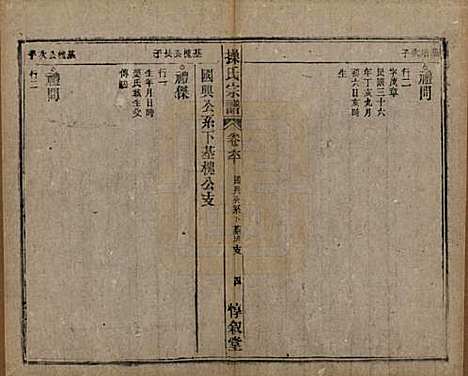 基墻公次子
禮問
行二
字茂草
民國三十六
年丁亥九月
初六日亥時
生
操氏宗譜
卷
國興公系下基槐支
四
惇敘堂
國興公系下基槐公支
基槐公長子
禮傑
行一
生年月日時
葉氏載生父
傳
基槐公次子
禮問
行二